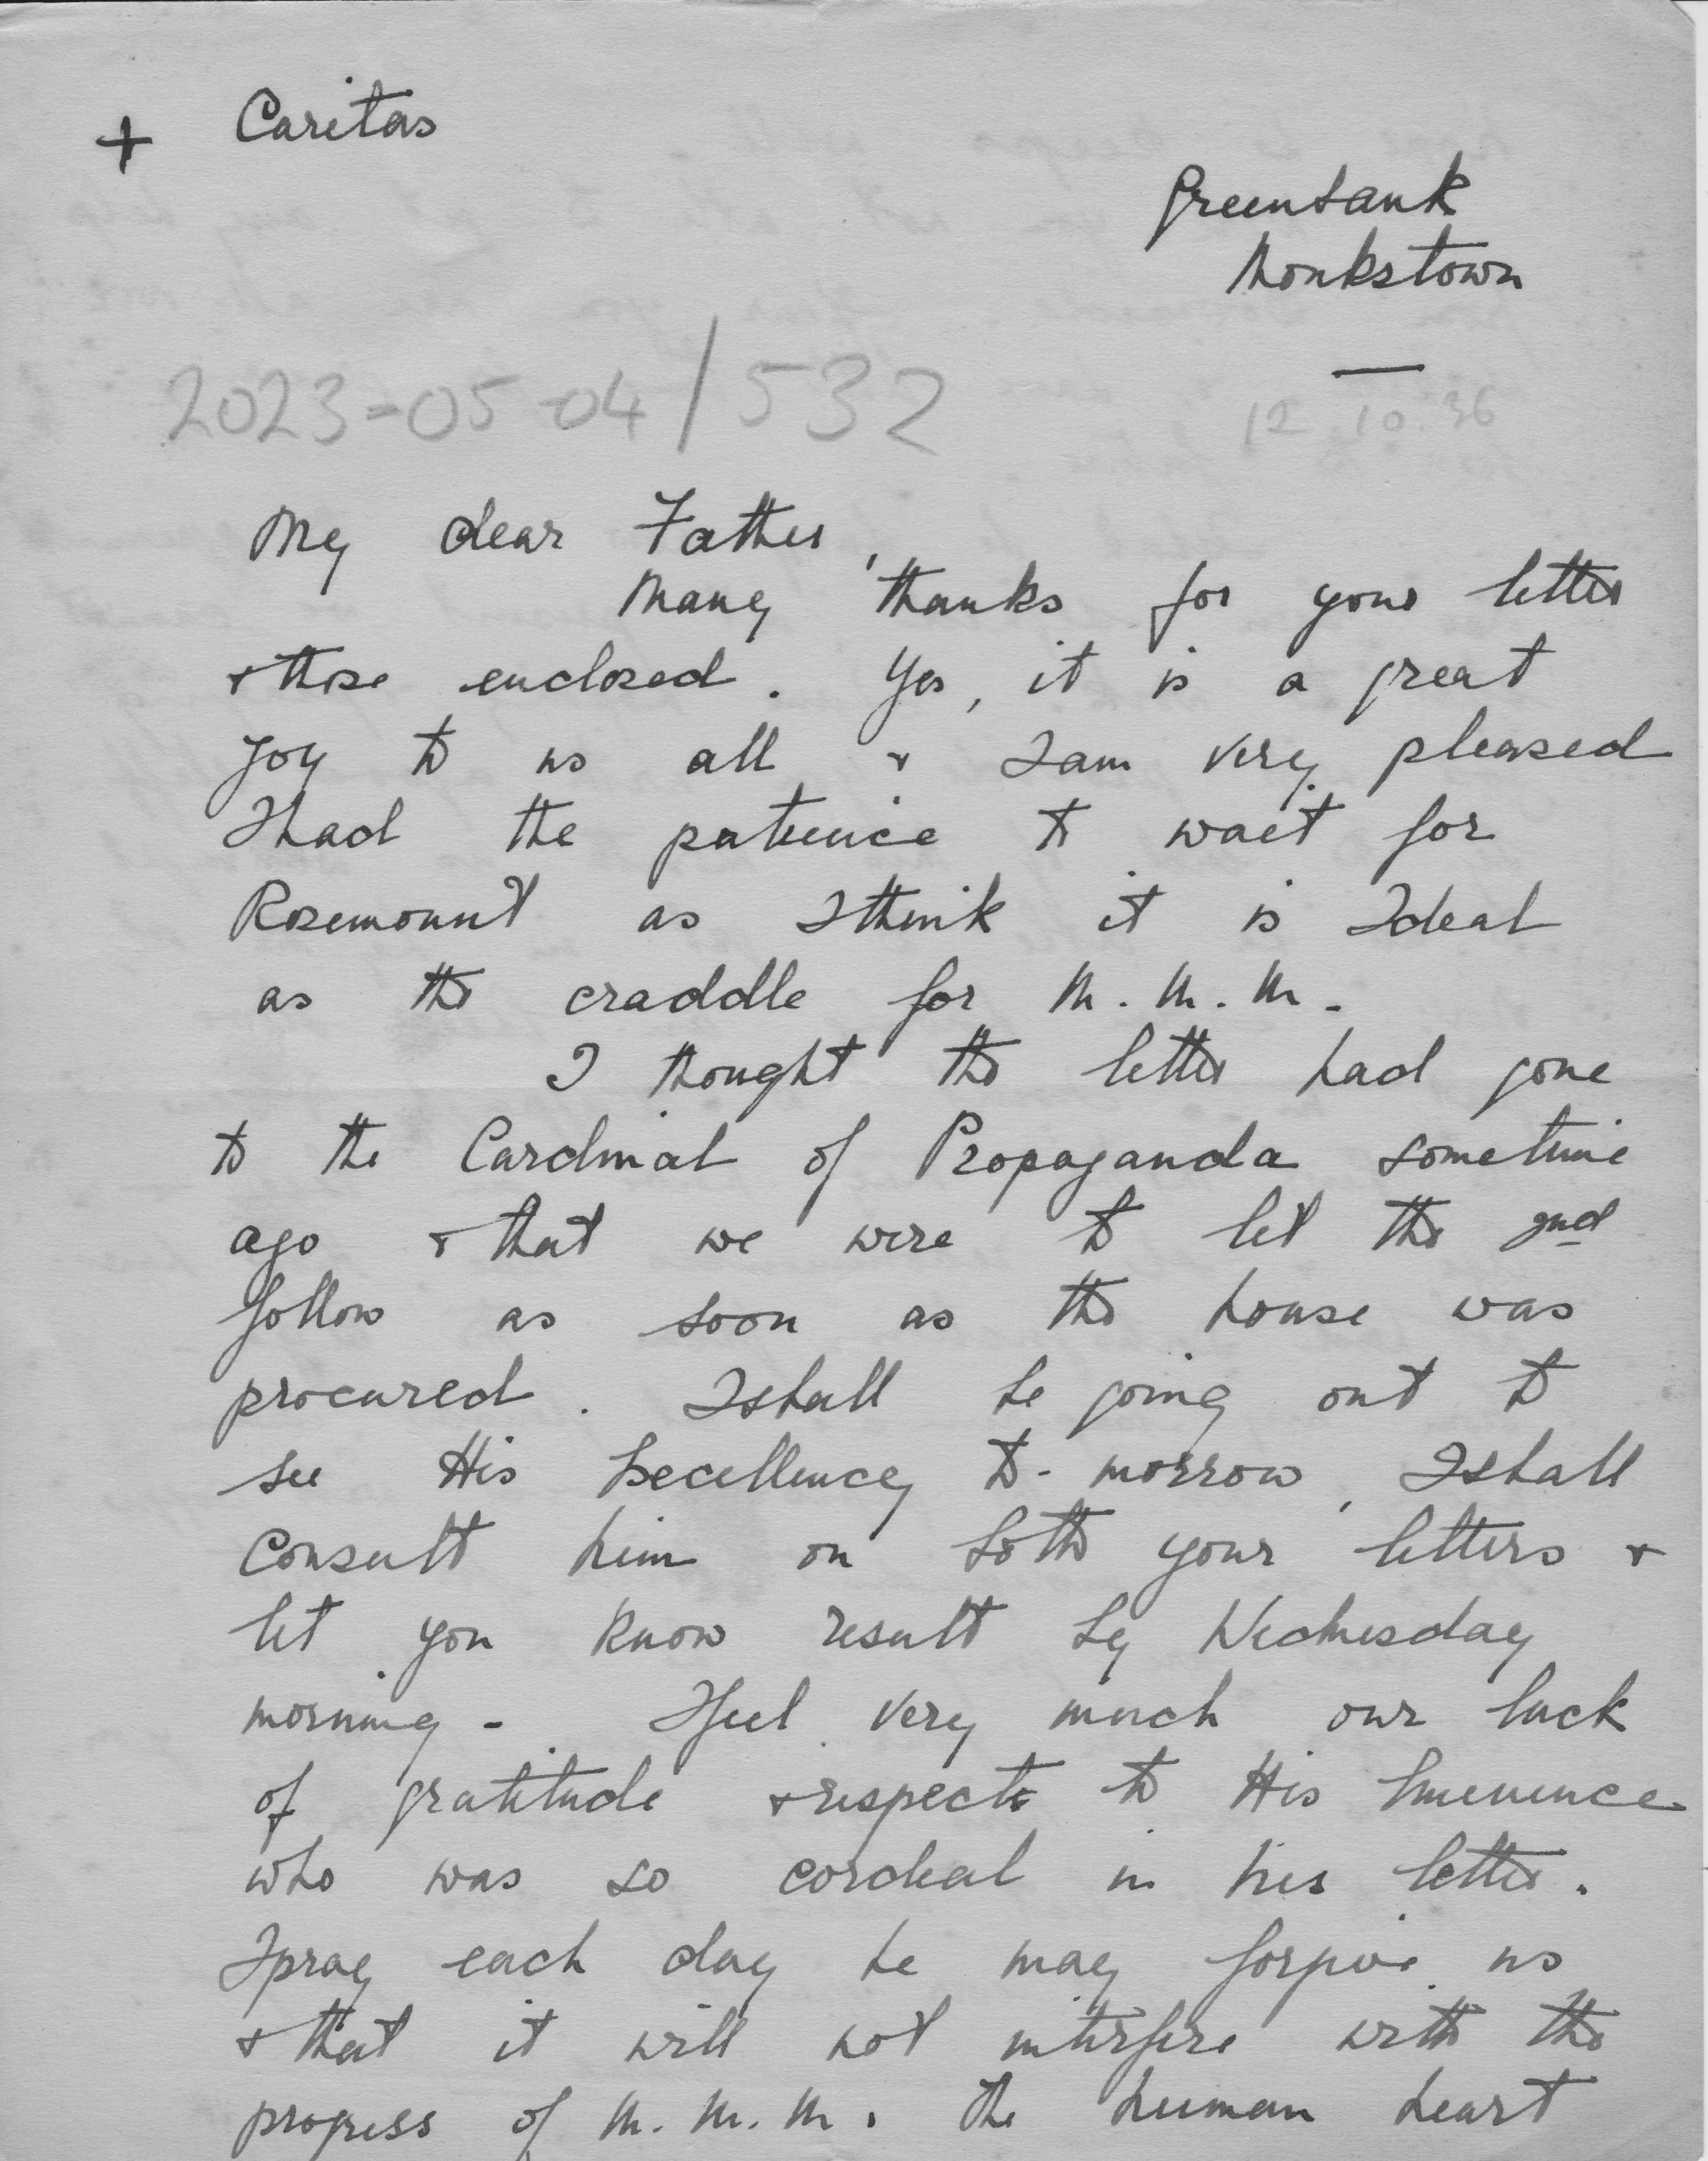 + Caritas
Greenbank
Monkstown
2023-05-04/532
12.10.36
My dear Father,
Many thanks for your letter
& those enclosed. Yes, it is a great
joy to us all & I am very pleased
I had the patience to wait for
Rosemount as I think it is Ideal
as the craddle for M.M.M.
I thought the letter had gone
to the Cardinal of Propaganda sometime
ago & that we were to let the 2nd
follow as soon as the house was
procured. I shall be going out to
see His Excellency to-morrow, I shall
consult him on both your letters &
let you know result by Wednesday
morning - I feel very much our lack
of gratitude & respect to His Eminence
who was so cordial in his letter.
I pray each day he may forgive us
& that it will not interfere with the
progress of M.M.M. The human heart